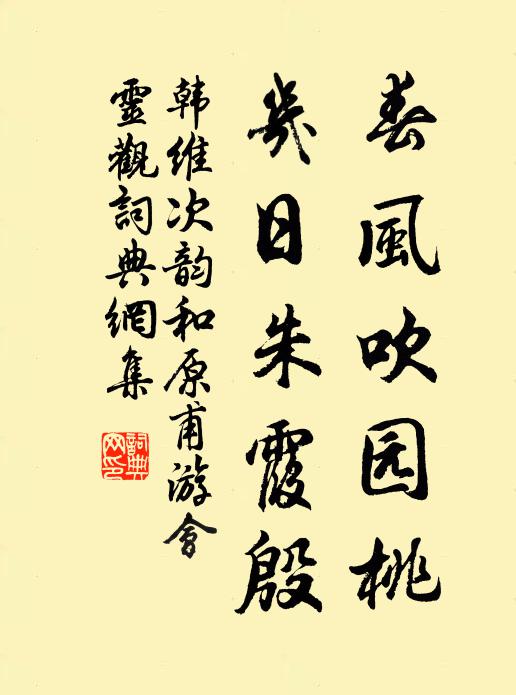 春風吹园桃
幾日朱霞殷
韩維次韵和原甫游會
靈觀詞典網集
詞典
网印